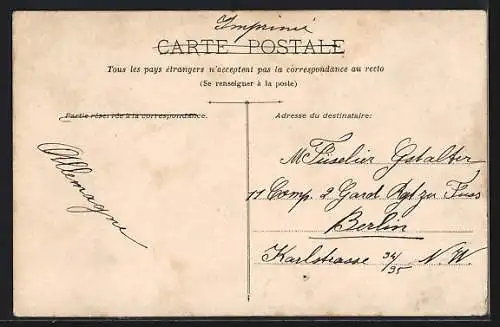 Imprimé
CARTE POSTALE
Tous les pays étrangers n'acceptent pas la correspondance au recto
(Se renseigner à la poste)
Partie réservée à la correspondance.
Allemagne
Adresse du destinataire:
M Füselier Gstalter
11 Comp. 2 Gard Rgt zu Fuss
Berlin
Karlstrasse 34/35 N. W.